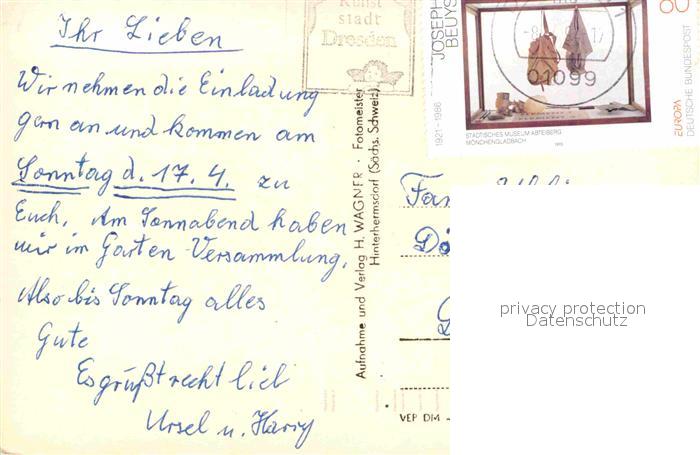 Ihr Lieben
Wir nehmen die Einladung
gern an und kommen am
Sonntag d. 17.4. zu
Euch. Am Sonnabend haben
wir im Garten Versammlung.
Also bis Sonntag alles
Gute
Es grüßt recht lieb
Ursel u. Harry
Kunst
stadt
Dresden
Aufnahme und Verlag H. WAGNER · Fotomeister
Hinterhermsdorf (Sächs. Schweiz)
VEP DM
JOSEPH
BEUYS
1921-1986
01099
80
STÄDTISCHES MUSEUM ABTEIBERG
MÖNCHENGLADBACH
1993
EUROPA
DEUTSCHE BUNDESPOST
Fam
privacy protection
Datenschutz